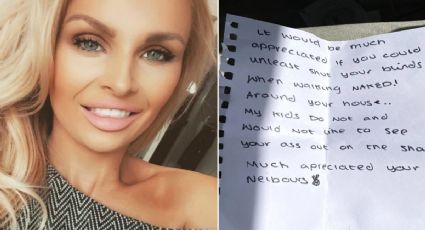 It would be much
appreciated if you could
unleast shut your blinds
when walking NAKED!
Around your house..
My kids Do not and
would not like to see
your ass out on the sha
Much apreciated your
Neibours